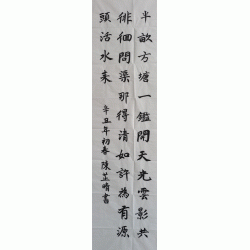 半畝方塘一鑑開天光雲影共
徘徊問渠那得清如許為有源
頭活水來
辛丑年初春陳芷晴書